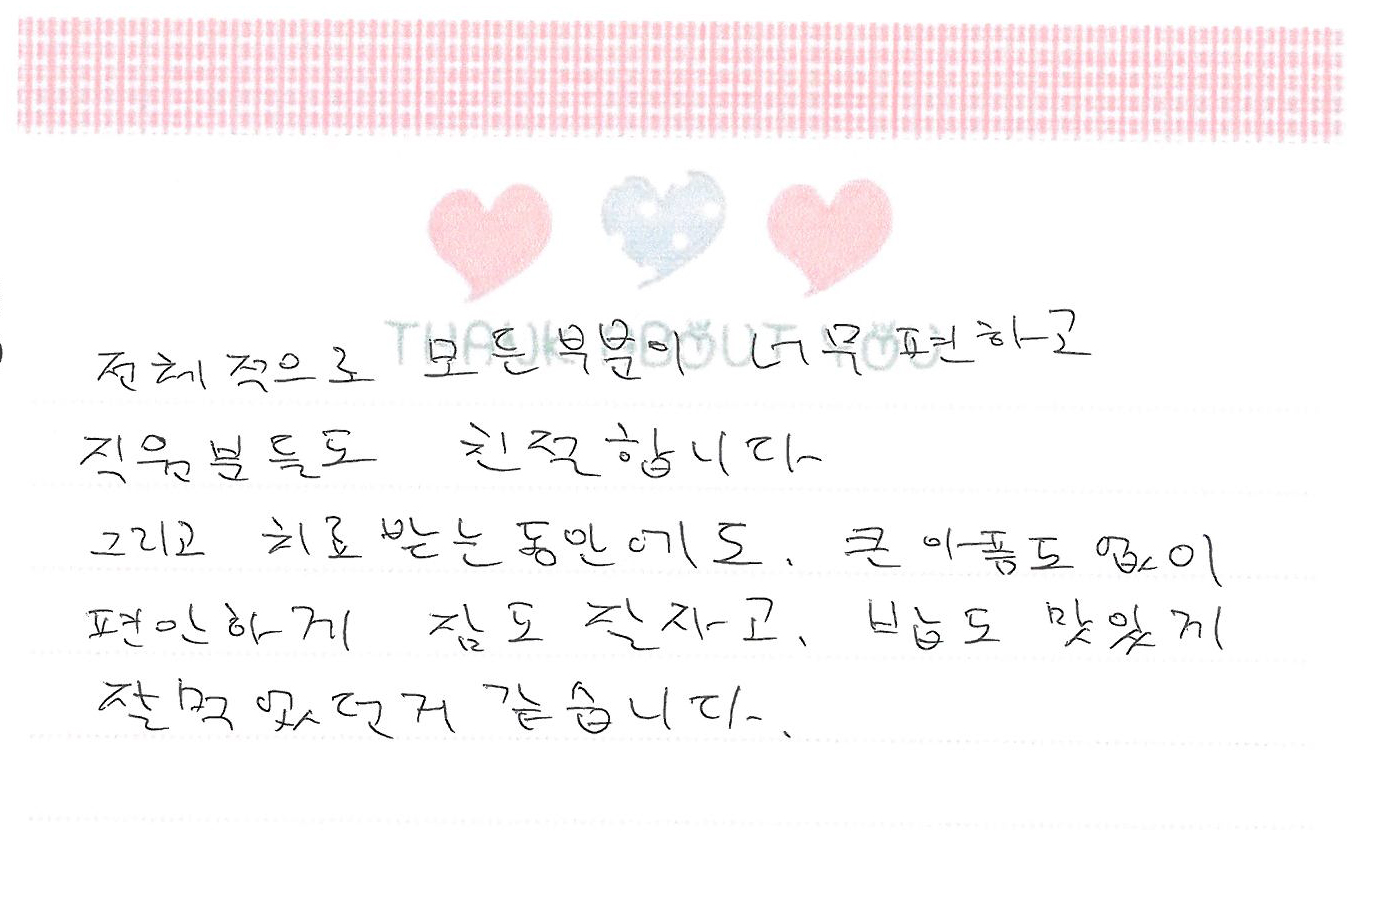 THANK ABOUT YOU
전체적으로 모든부분이 너무편하고
직원분들도 친절합니다
그리고 치료받는동안에도. 큰아픔도 없이
편안하게 잠도 잘자고. 밥도 맛있게
잘먹었던거 같습니다.